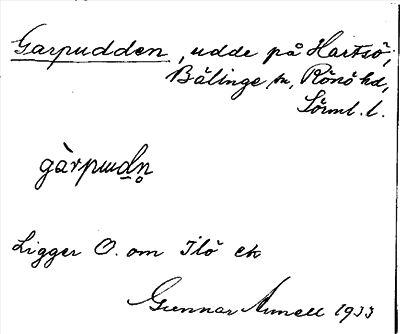 Garpudden, udde på Hartsö,
Bälinge sn, Rönö hd,
Sörml. l.
gàrpɯdn̥
Ligger O. om Ilö ek
Gunnar Arnell 1933